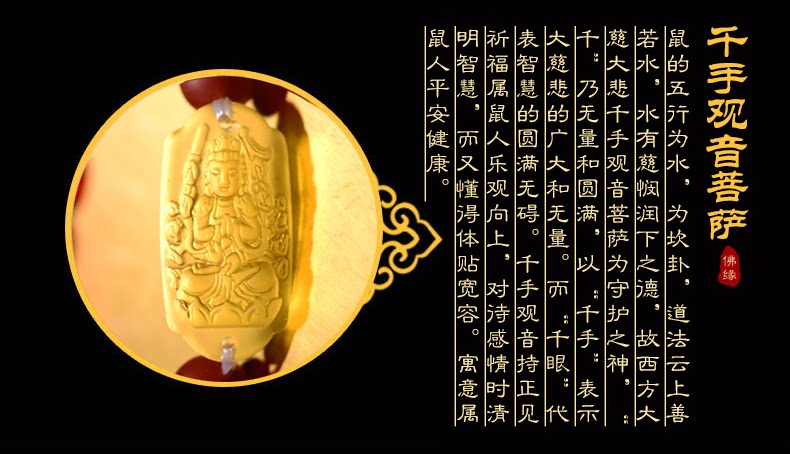 千手观音菩萨
佛缘
鼠的五行为水，为坎卦，道法云上善
若水，水有慈悯润下之德，故西方大
慈大悲千手观音菩萨为守护之神，“
千”乃无量和圆满，以“千手”表示
大慈悲的广大和无量。而“千眼”代
表智慧的圆满无碍。千手观音持正见
祈福属鼠人乐观向上，对待感情时清
明智慧，而又懂得体贴宽容。寓意属
鼠人平安健康。